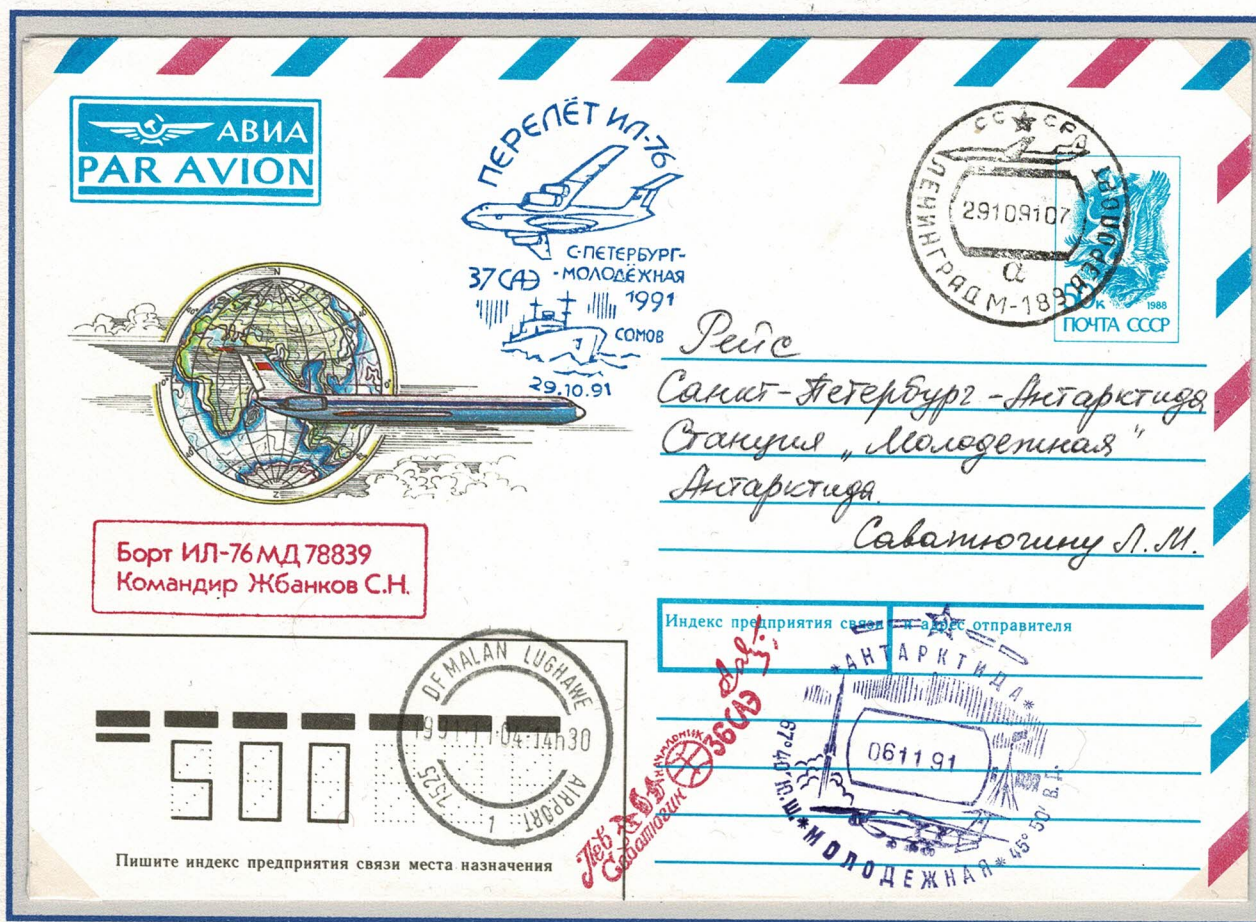 АВИА
PAR AVION
ПЕРЕЛЁТ ИЛ-76
С-ПЕТЕРБУРГ-
37 САЭ -МОЛОДЁЖНАЯ
1991
СОМОВ
29.10.91
СССР
ЛЕНИНГРАД М-189 АЭРОПОРТ
29109107
а
50к
1988
ПОЧТА СССР
Рейс
Санкт-Петербург-Антарктида
Станция „Молодежная"
Антарктида
Саватюгину Л.М.
N
Z
Борт ИЛ-76МД 78839
Командир Жбанков С.Н.
Индекс предприятия связи и адрес отправителя
DF MALAN LUGHAWE
1991-11-04-14h30
7525 1 AIRPORT
500
Пишите индекс предприятия связи места назначения
НАЧАЛЬНИК
36 САЭ
Лев
Саватюгин
*АНТАРКТИДА*
06 11 91
67°40' Ю.Ш.*МОЛОДЕЖНАЯ*45° 50' В.Д.